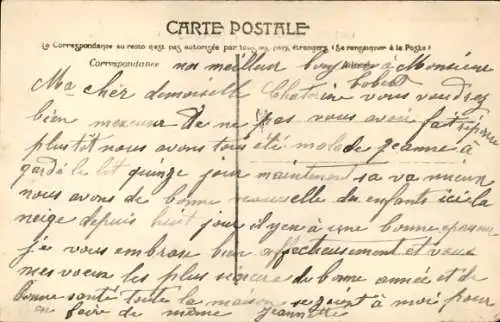 CARTE POSTALE
La Correspondance au recto n'est pas autorisée par tous les pays étrangers (Se renseigner à la Poste)
Correspondance
un meilleur bonjour à Monsieur
Ma cher demoiselle vous voudrez
bien mexcuser de ne pas vous avoir fait réponse
plus tôt nous avons tous été malade jeanne à
gardé le lit quinze jour maintenent sa va mieux
nous avons de bonne nouvelle du enfants ici la
neige depuis huit jour il y en à une bonne épaisseur
je vous embrase bien affectueusement et vous
mes voeux les plus sincère de bonne année et de
bonne santé toute la maison se joint à moi pour
en faire de même Jeannette